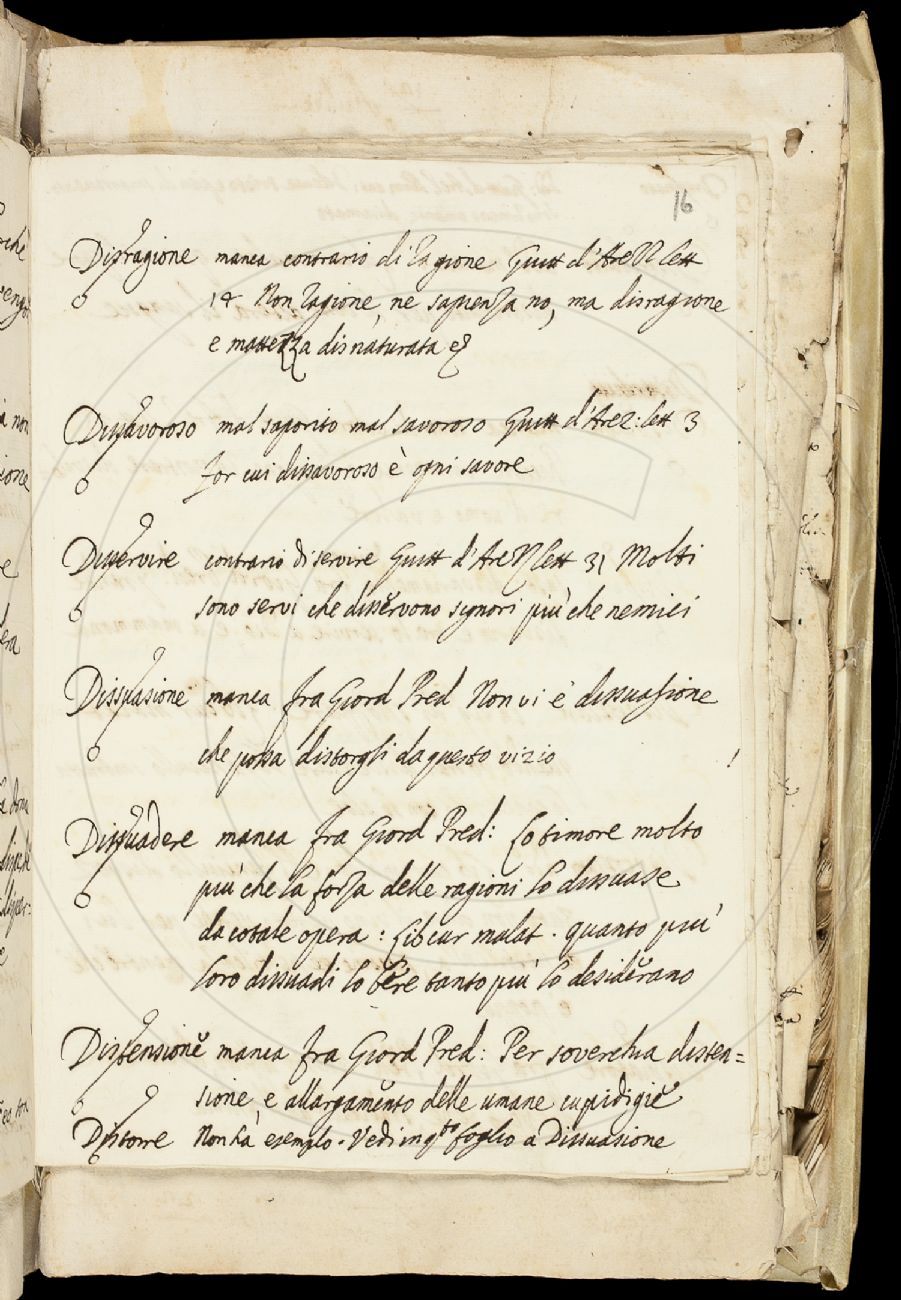 16
Disragione manca contrario di ragione Guitt d'Arezz lett
14 Non ragione, ne sapienza no, ma disragione
e mattezza disnaturata è
Dissavoroso mal saporito mal savoroso Guitt d'Arez: lett 3
for cui dissavoroso è ogni savore
Disservire contrario di servire Guitt d'Arezz lett 31 Molti
sono servi che disservono signori più che nemici
Dissuasione manca fra Giord Pred Non vi è dissuasione
che possa distorgli da questo vizio
Dissuadere manca fra Giord Pred: Lo timore molto
più che la forza delle ragioni lo dissuase
da cotale opera: Lib cur malat. quanto più
loro dissuadi lo bere tanto più lo desiderano
Distensione manca fra Giord Pred: Per soverchia disten=
sione, e allargamento delle umane cupidigie
Distorre Non ha esemplo. Vedi in q.to foglio a Dissuasione